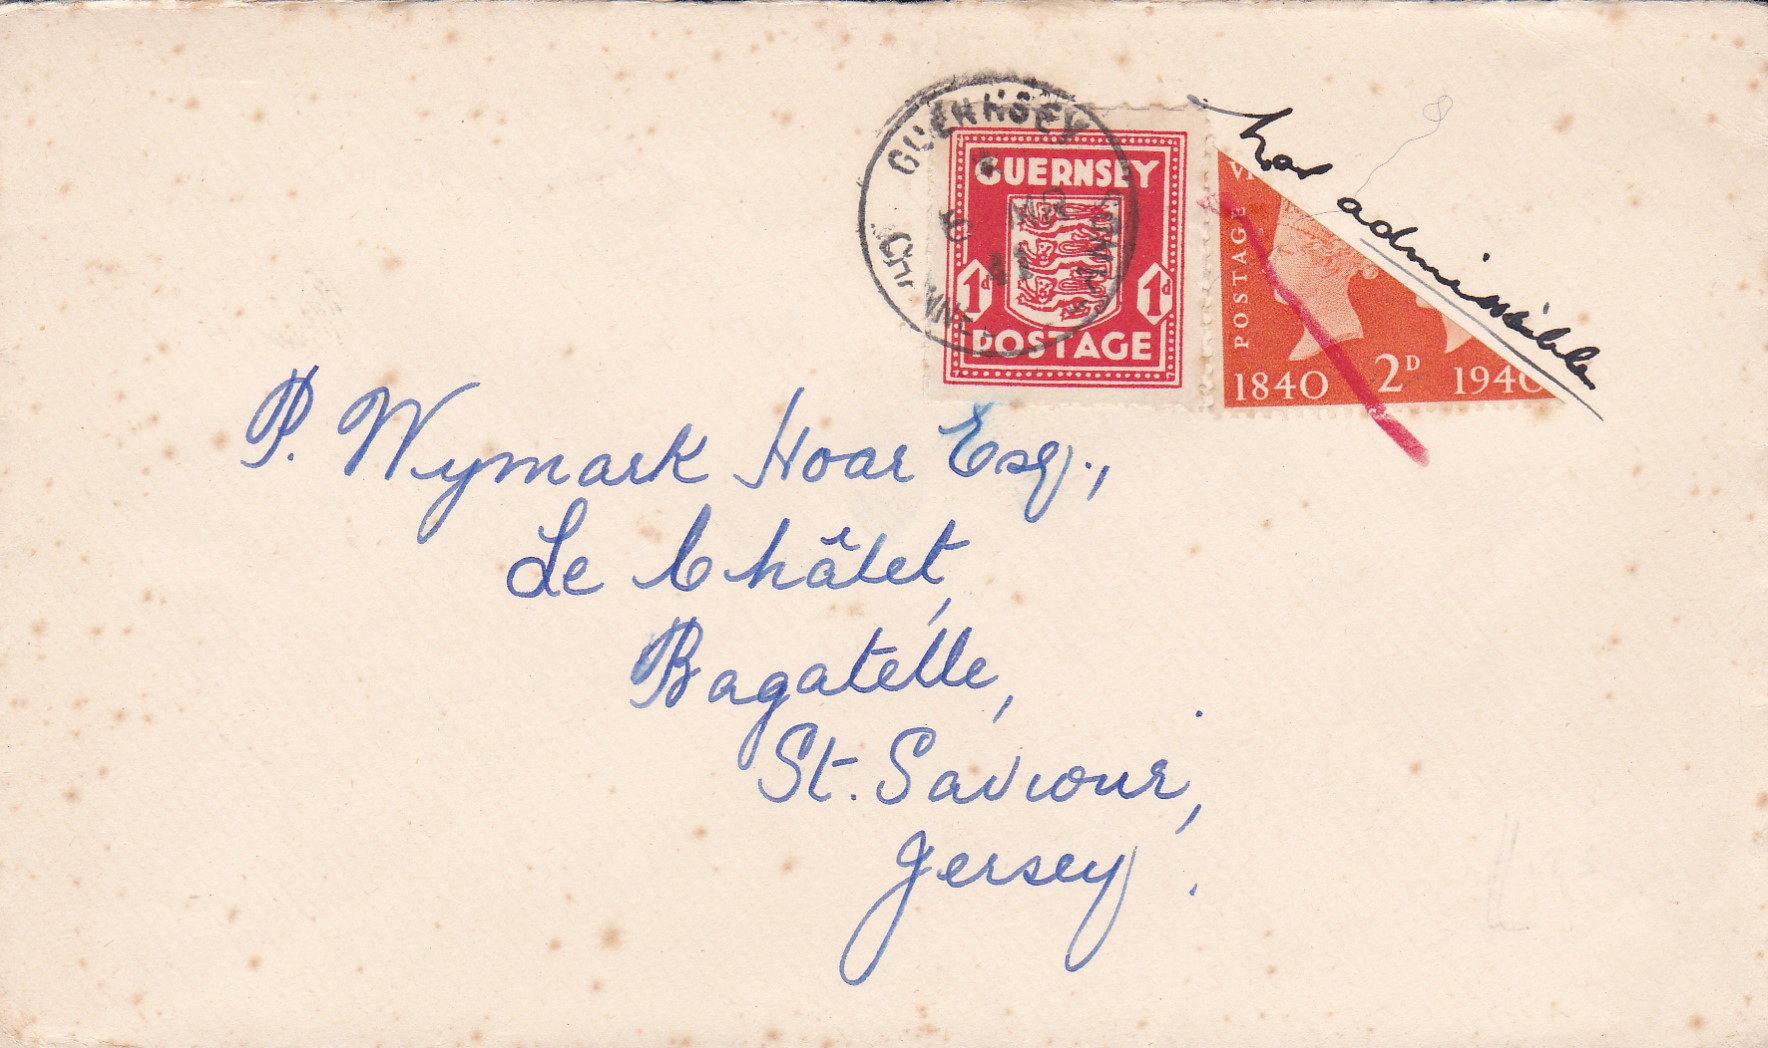 GUERNSEY
CHANNEL ISLANDS
MR
41
GUERNSEY
1d 1d
POSTAGE
POSTAGE
1840 2D 1940
Not admissible
P. Wymark Hoar Esq.,
Le Châlet,
Bagatelle,
St. Saviour,
Jersey.